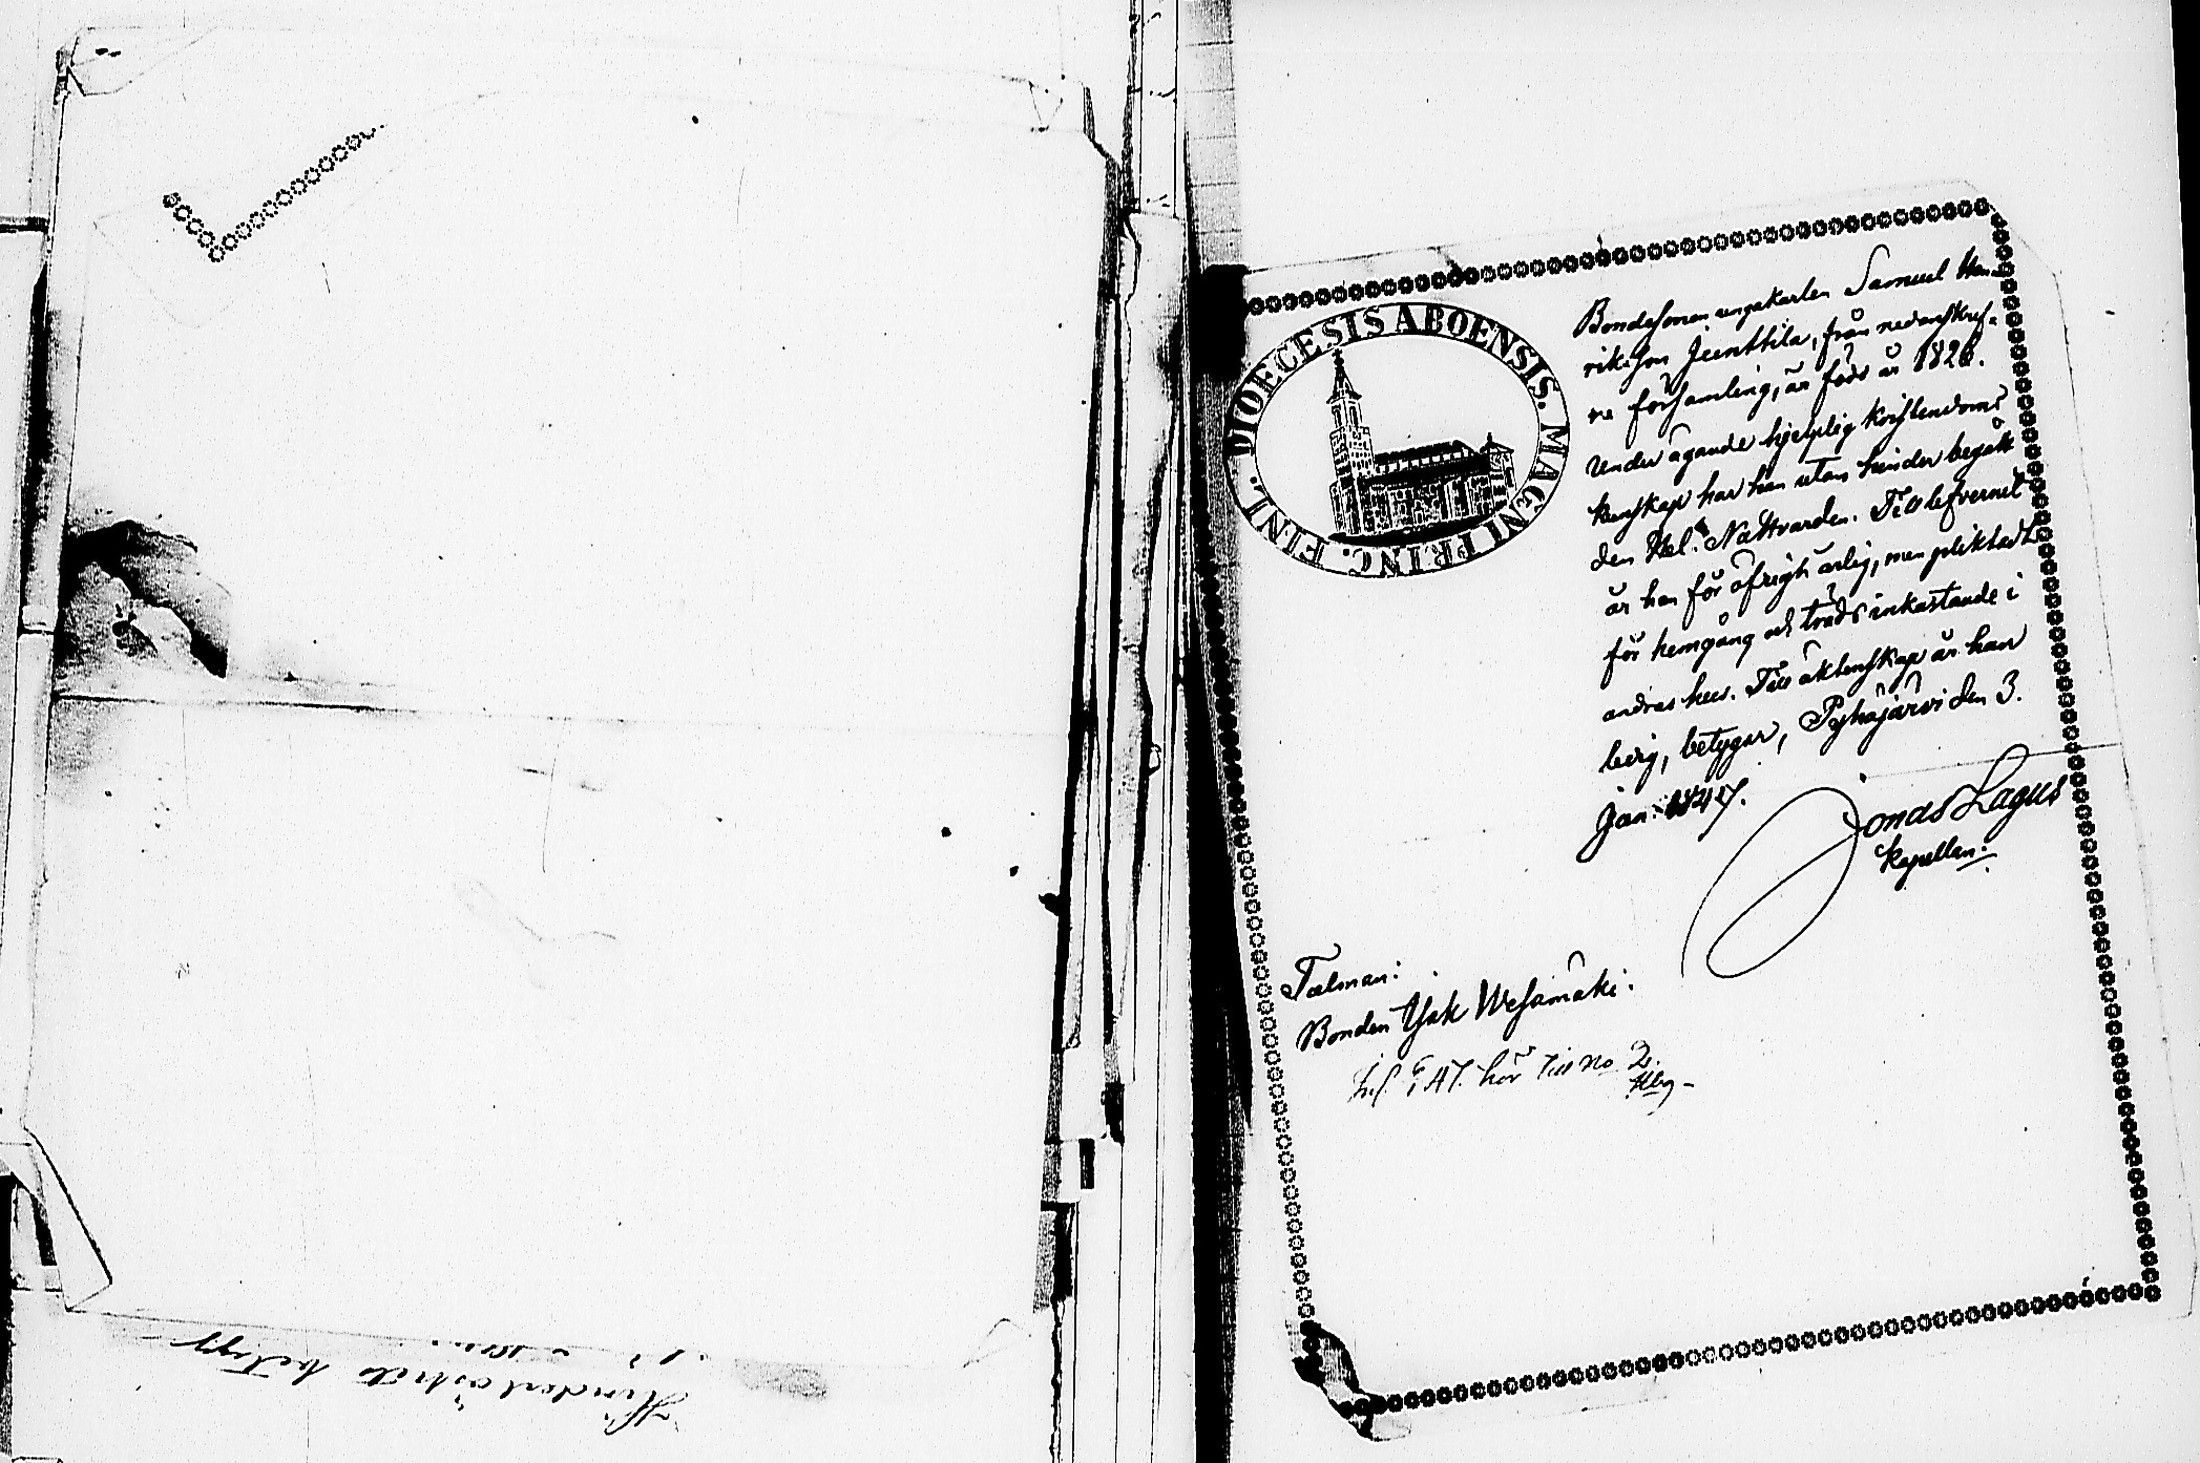 DIOECESIS ABOENSIS. MAGNI PRINC. FINL.
Bondesonen ungekarlen Samuel Hen-
rikson Junttila, från nedanskref-
ne församling, är född år 1826.
Under ägande hjelplig kristendoms
kunskap har han utan hinder begått
den Hel. Nattvarden. Till lefvernet
är han för öfrigt ärlig, men pliktad
för hemgång och träds inkastande i
andras hus. Till äktenskap är han
ledig, betygar, Pyhäjärvi den 3.
Jan: 1847.
Jonas Lagus
Kapellan.
Talman:
Bonden Isak Wesamäki.
47. hör till no 2.
Hinderlöshets betyg